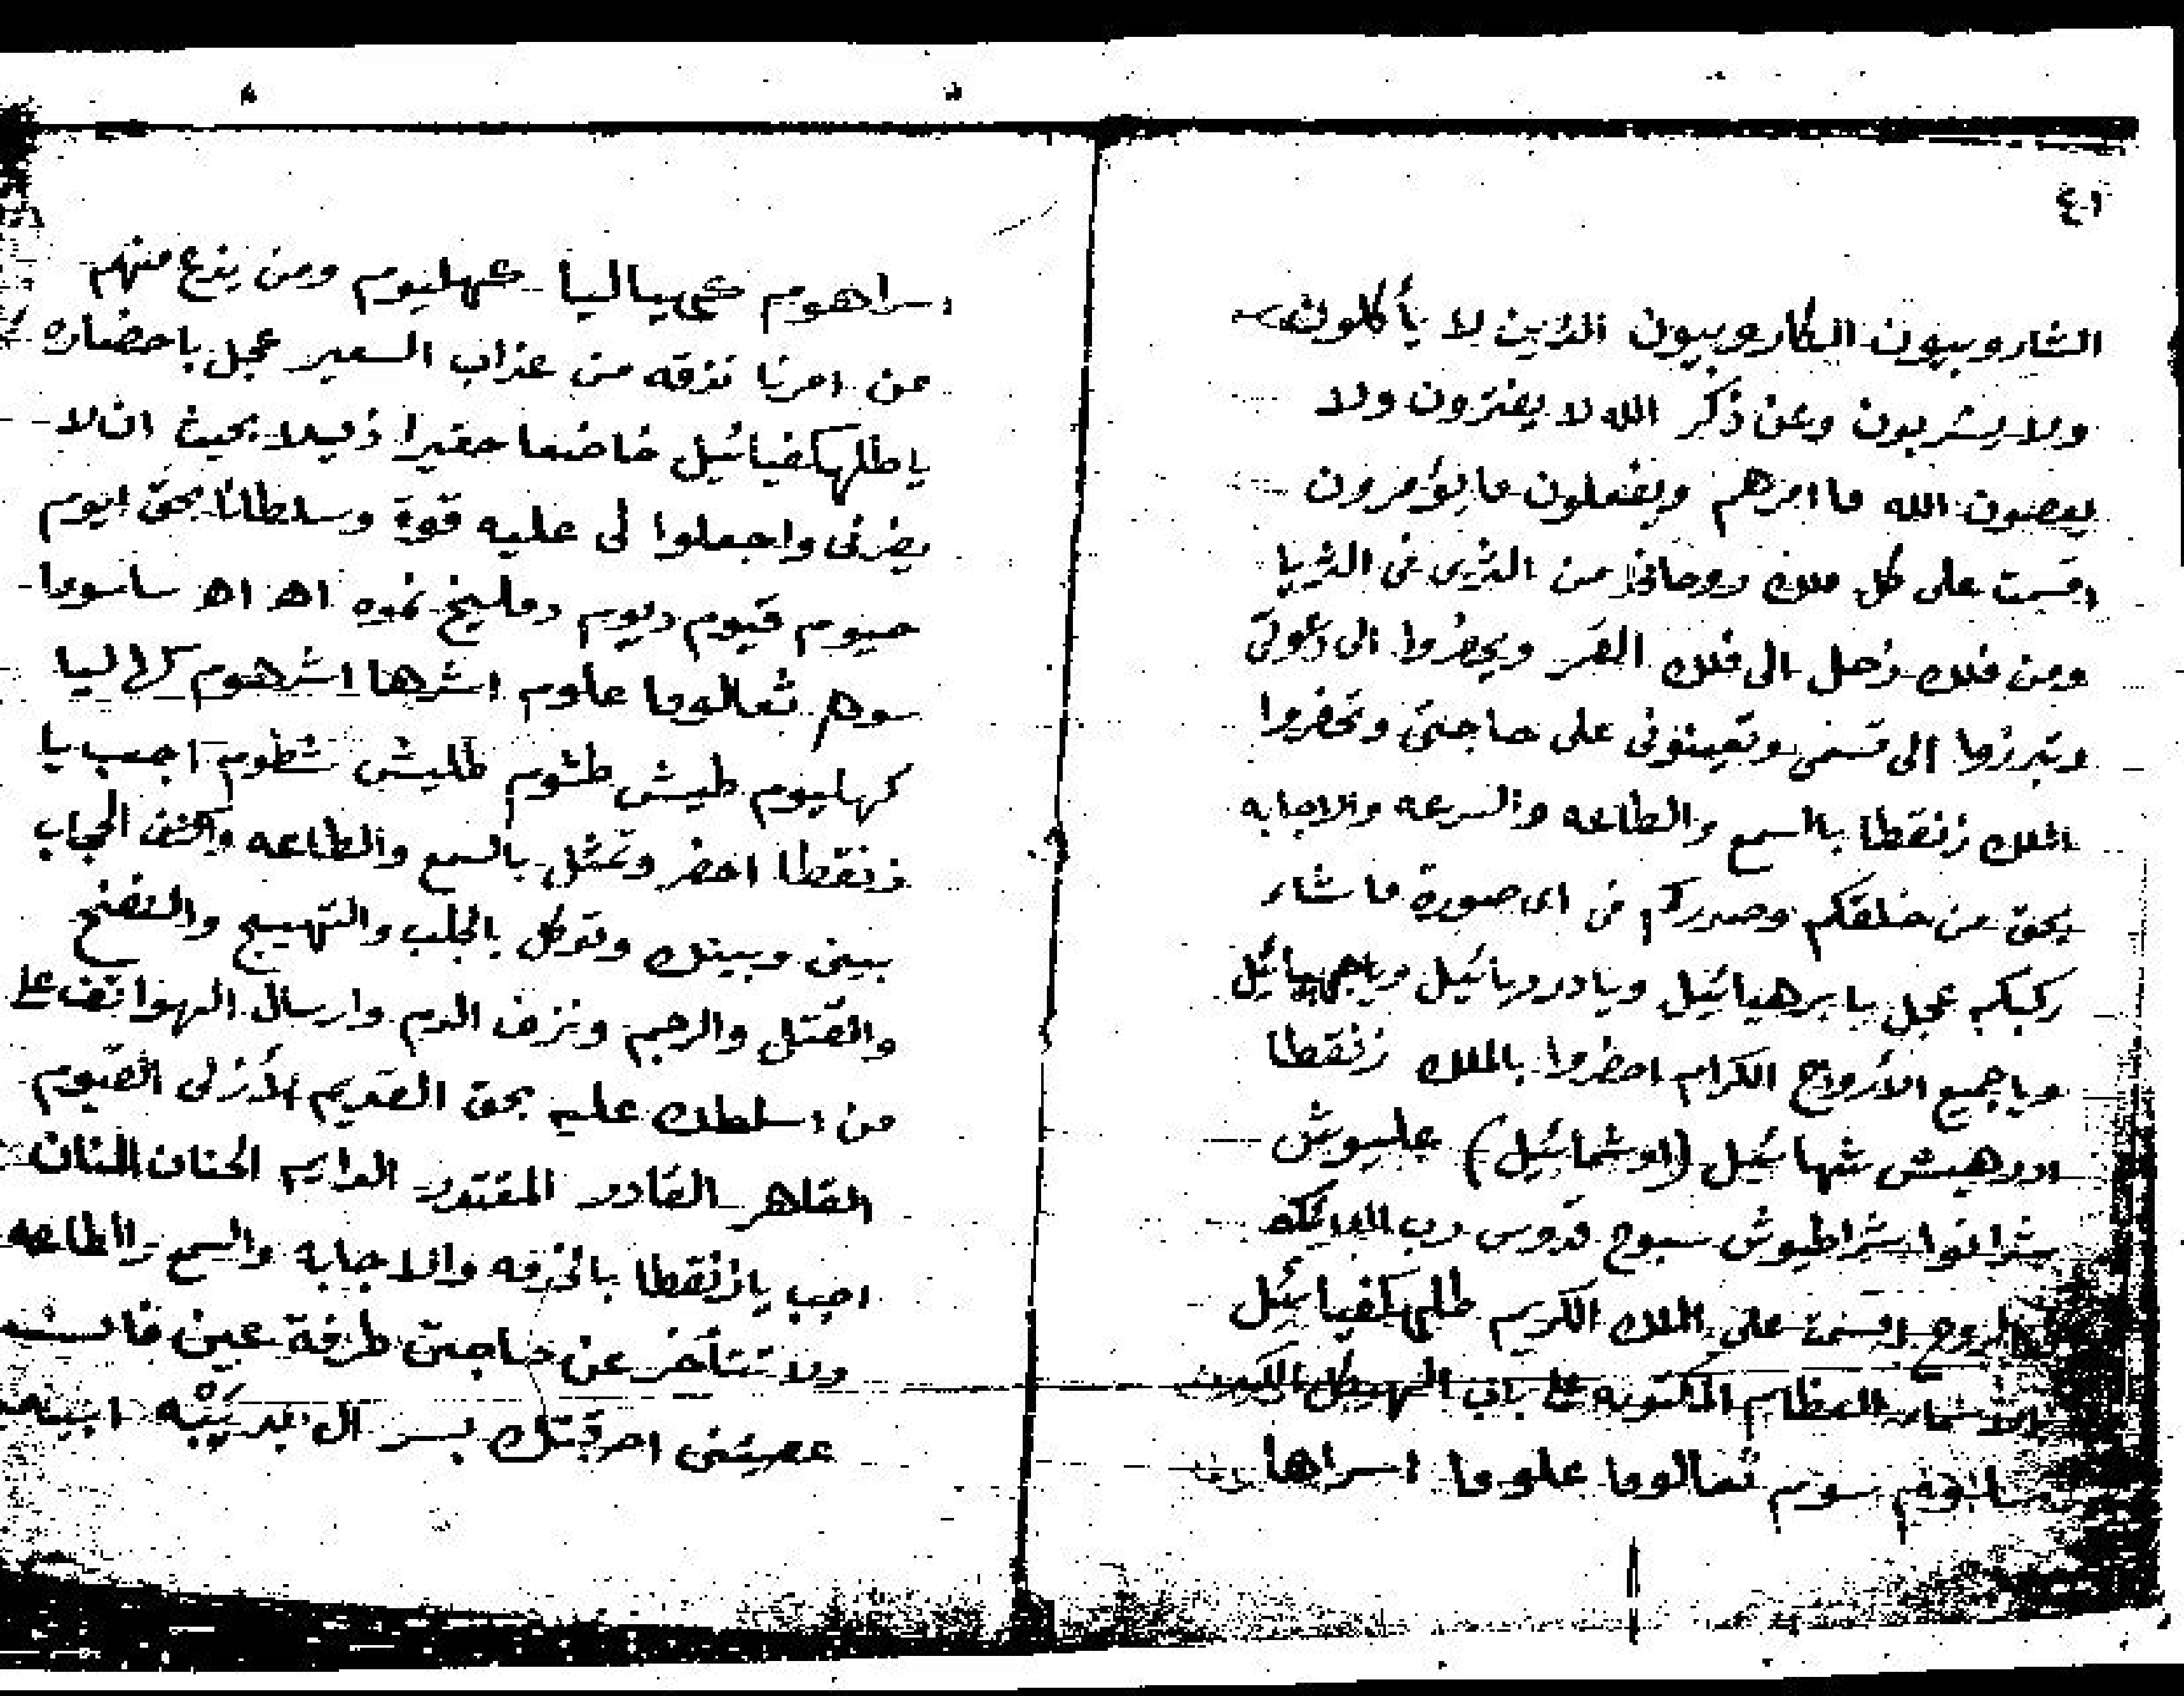 ٤٠١
الشاروبيون الكاروبيون الذين لا يأكلون
ولا يشربون وعن ذكر الله لا يفترون ولا
يعصون الله ما امرهم ويفعلون ما يؤمرون
اقسمت على كل ملك روحانى من الثرى الى الثريا
ومن فلك زحل الى فلك القمر ويحضروا الى دعوتى
وتبرزوا الى قسمى وتعينونى على حاجتى وتحضروا
الملك زنقطا بالسمع والطاعه والسرعه والاجابه
بحق من خلقكم وصوركم فى اى صورة ما شاء
ركبكم عجل يا برهيائيل ويا دردبائيل
ويا جميع الأرواح الكرام احضروا بالملك زنقطا
ادرهيش شهائيل (اوشمائيل) عليوش
شرانوا شراطيوش سبوح قدوس رب الملائكه
والروح اقسمت على الملك الكريم طلهكفيائيل
بالاسماء العظام المكتوبه على باب الهيكل الكبير
سوم تعالوما علوما اسراها
اسراهوم ومن يزغ منهم
عن امرنا نذقه من عذاب السعير عجل باحضاره
يا طلهكفيائيل خاضعا حقيرا ذليلا بحيث ان لا
يضرنى واجعلوا لى عليه قوة وسلطانا بحق ايوم
حيوم قيوم ديوم دمليخ نموه اه اه
سوم تعالوما علوم اشرها اشرهوم
كهليوم طيش طشوم طليش شطوم اجب يا
زنقطا احضر وتمثل بالسمع والطاعه واكشف الحجاب
بينى وبينك وتوكل بالجلب والتهييج
والقتل والرجم ونزف الدم وارسال الهواتف على
من اسلطك عليه بحق القديم الأزلى القيوم
القاهر القادر المقتدر الدايم الحنان المنان
اجب يا زنقطا والاجابه والسمع والطاعه
ولا تتأخر عن حاجتى طرفة عين
عصيتنى احرقتك بسر